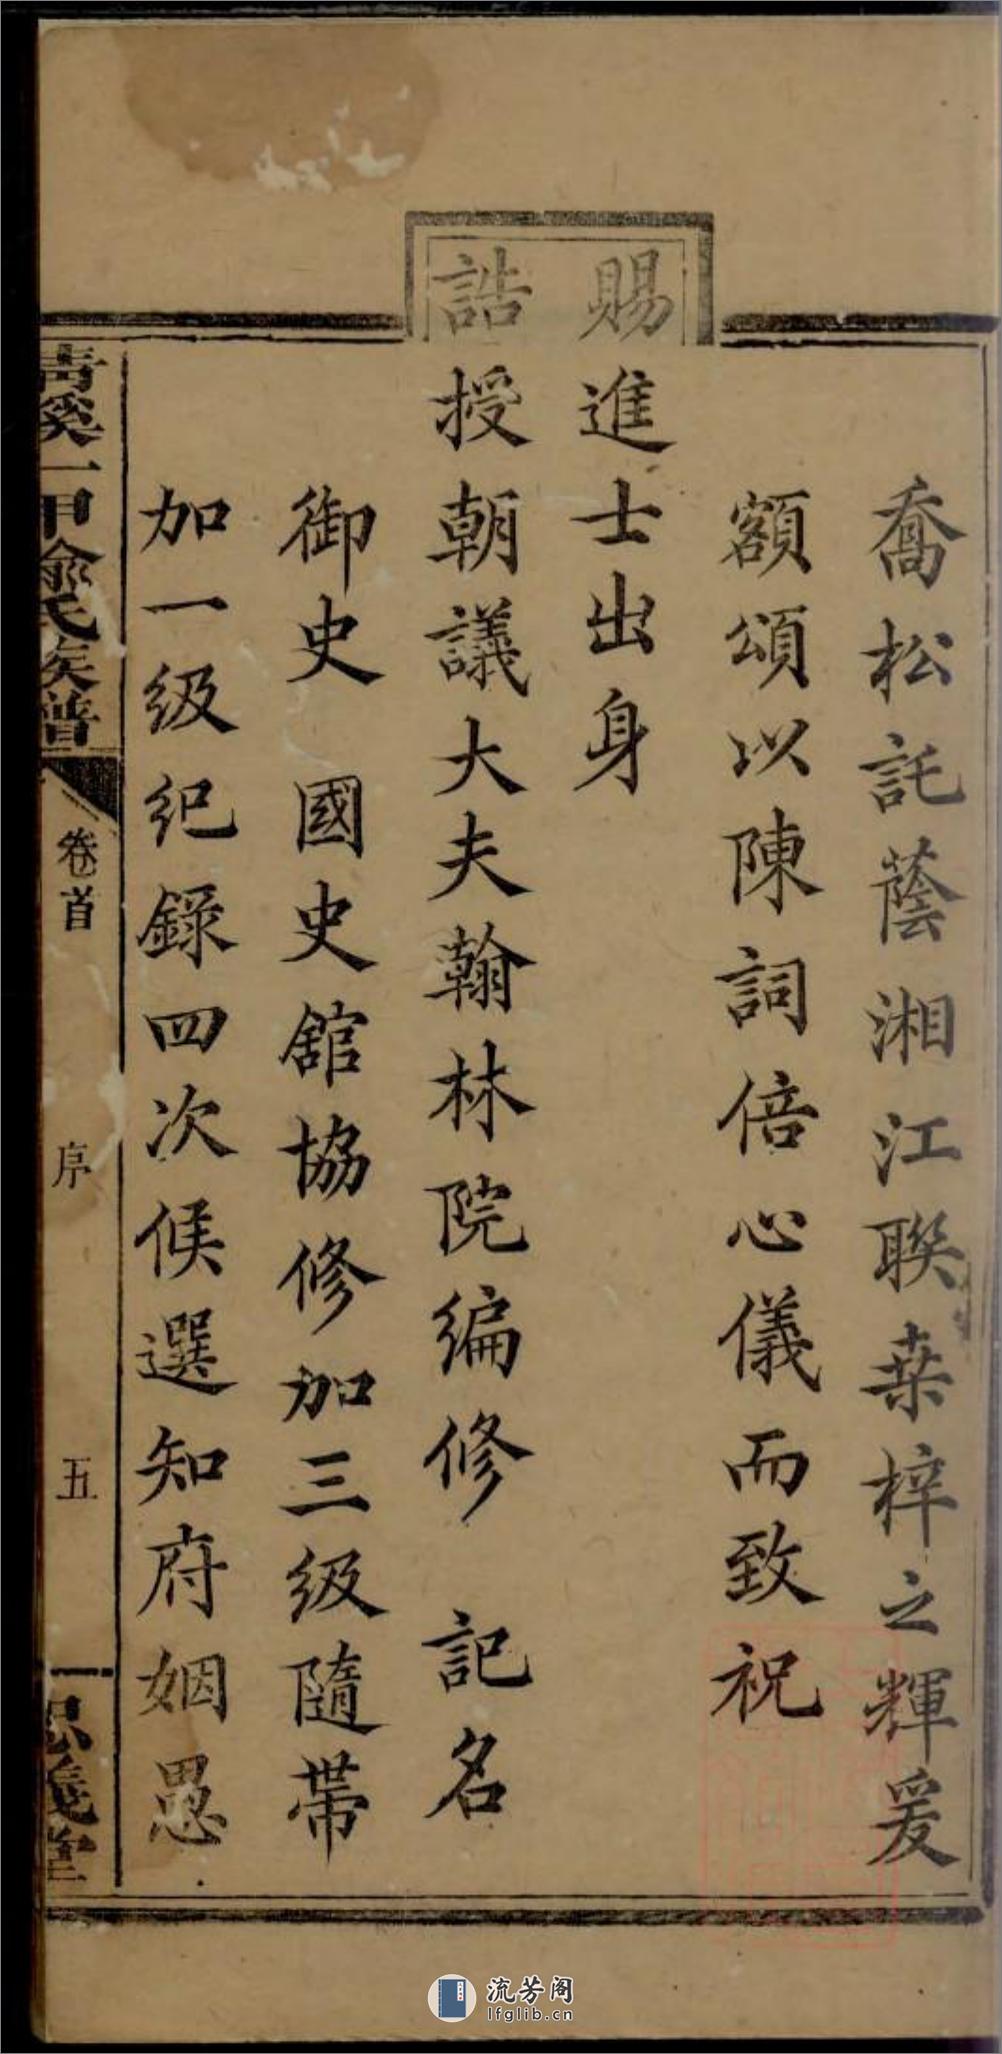 喬松託蔭湘江聯桒梓之輝爰
額頌以陳詞倍心儀而致祝
賜進士出身
誥授朝議大夫翰林院編修 記名
御史 國史館協修加三級隨帶
加一級紀錄四次候選知府姻愚
青溪一甲俞氏族譜
卷首
序
五
思義堂
流芳阁
lfglib.cn